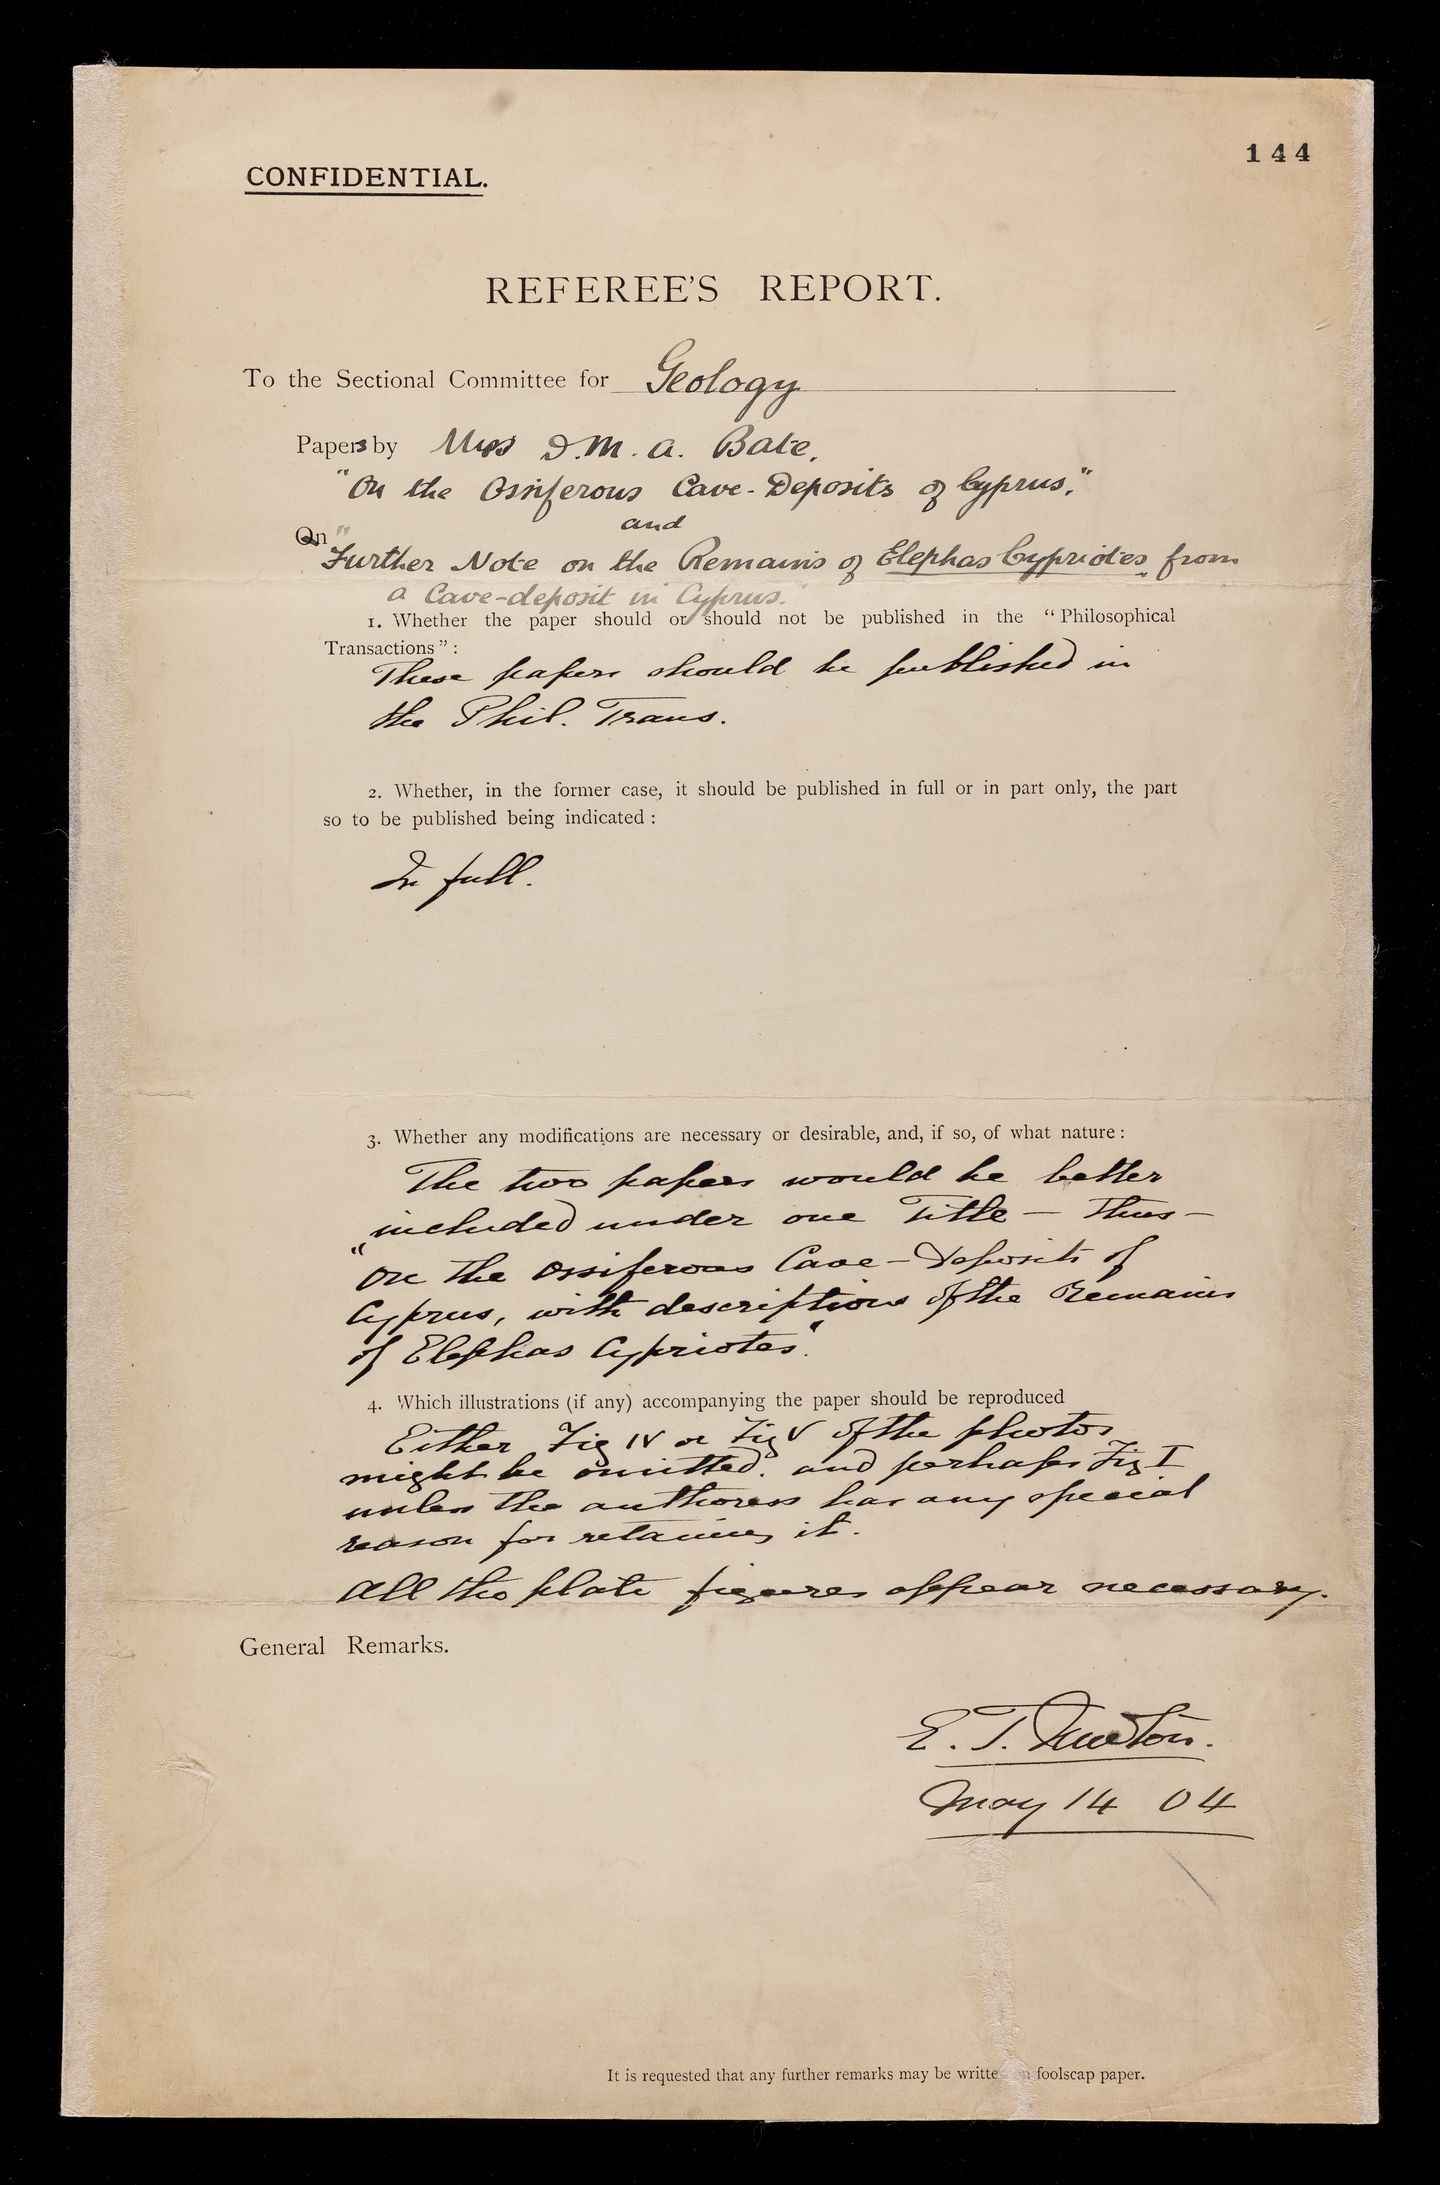 144
CONFIDENTIAL.
REFEREE'S REPORT.
To the Sectional Committee for Geology
Papers by Miss D. M. A. Bate,
"On the Ossiferous Cave-Deposits of Cyprus,"
and
On "Further Note on the Remains of Elephas Cypriotes from
a Cave-deposit in Cyprus."
1. Whether the paper should or should not be published in the "Philosophical
Transactions":
These papers should be published in
the Phil. Trans.
2. Whether, in the former case, it should be published in full or in part only, the part
so to be published being indicated:
In full.
3. Whether any modifications are necessary or desirable, and, if so, of what nature:
The two papers would be better
included under one Title — Thus —
"On the Ossiferous Cave-Deposits of
Cyprus, with descriptions of the Remains
of Elephas Cypriotes".
4. Which illustrations (if any) accompanying the paper should be reproduced
Either Fig IV or Fig V of the photos
might be omitted. and perhaps Fig I
unless the authoress has any special
reason for retaining it.
All the plate figures appear necessary.
General Remarks.
E. T. Newton.
May 14 04
It is requested that any further remarks may be written on foolscap paper.